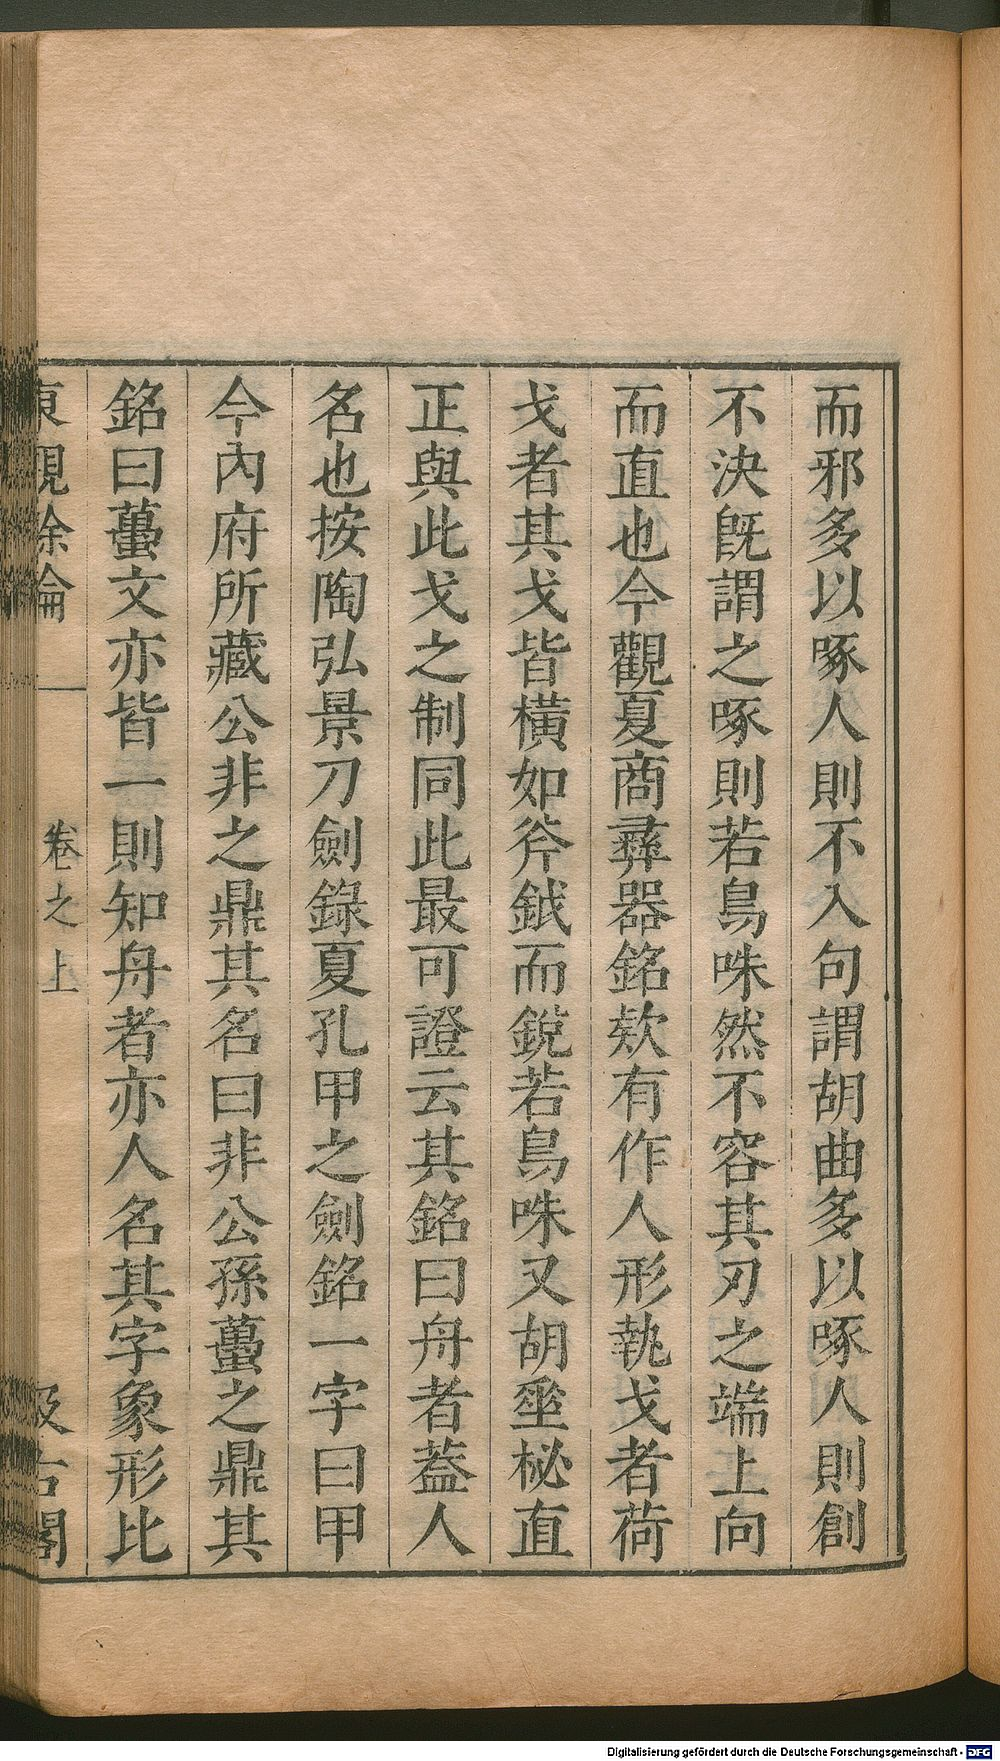 而邪多以啄人則不入句謂胡曲多以啄人則創
不決旣謂之啄則若鳥咮然不容其刃之端上向
而直也今觀夏商彞器銘欵有作人形執戈者荷
戈者其戈皆橫如斧鉞而銳若鳥咮又胡垂柲直
正與此戈之制同此最可證云其銘曰舟者葢人
名也按陶弘景刀劍錄夏孔甲之劍銘一字曰甲
今內府所藏公非之鼎其名曰非公孫蠆之鼎其
銘曰蠆文亦皆一則知舟者亦人名其字象形比
東觀餘論
卷之上
汲古閣
Digitalisierung gefördert durch die Deutsche Forschungsgemeinschaft - DFG